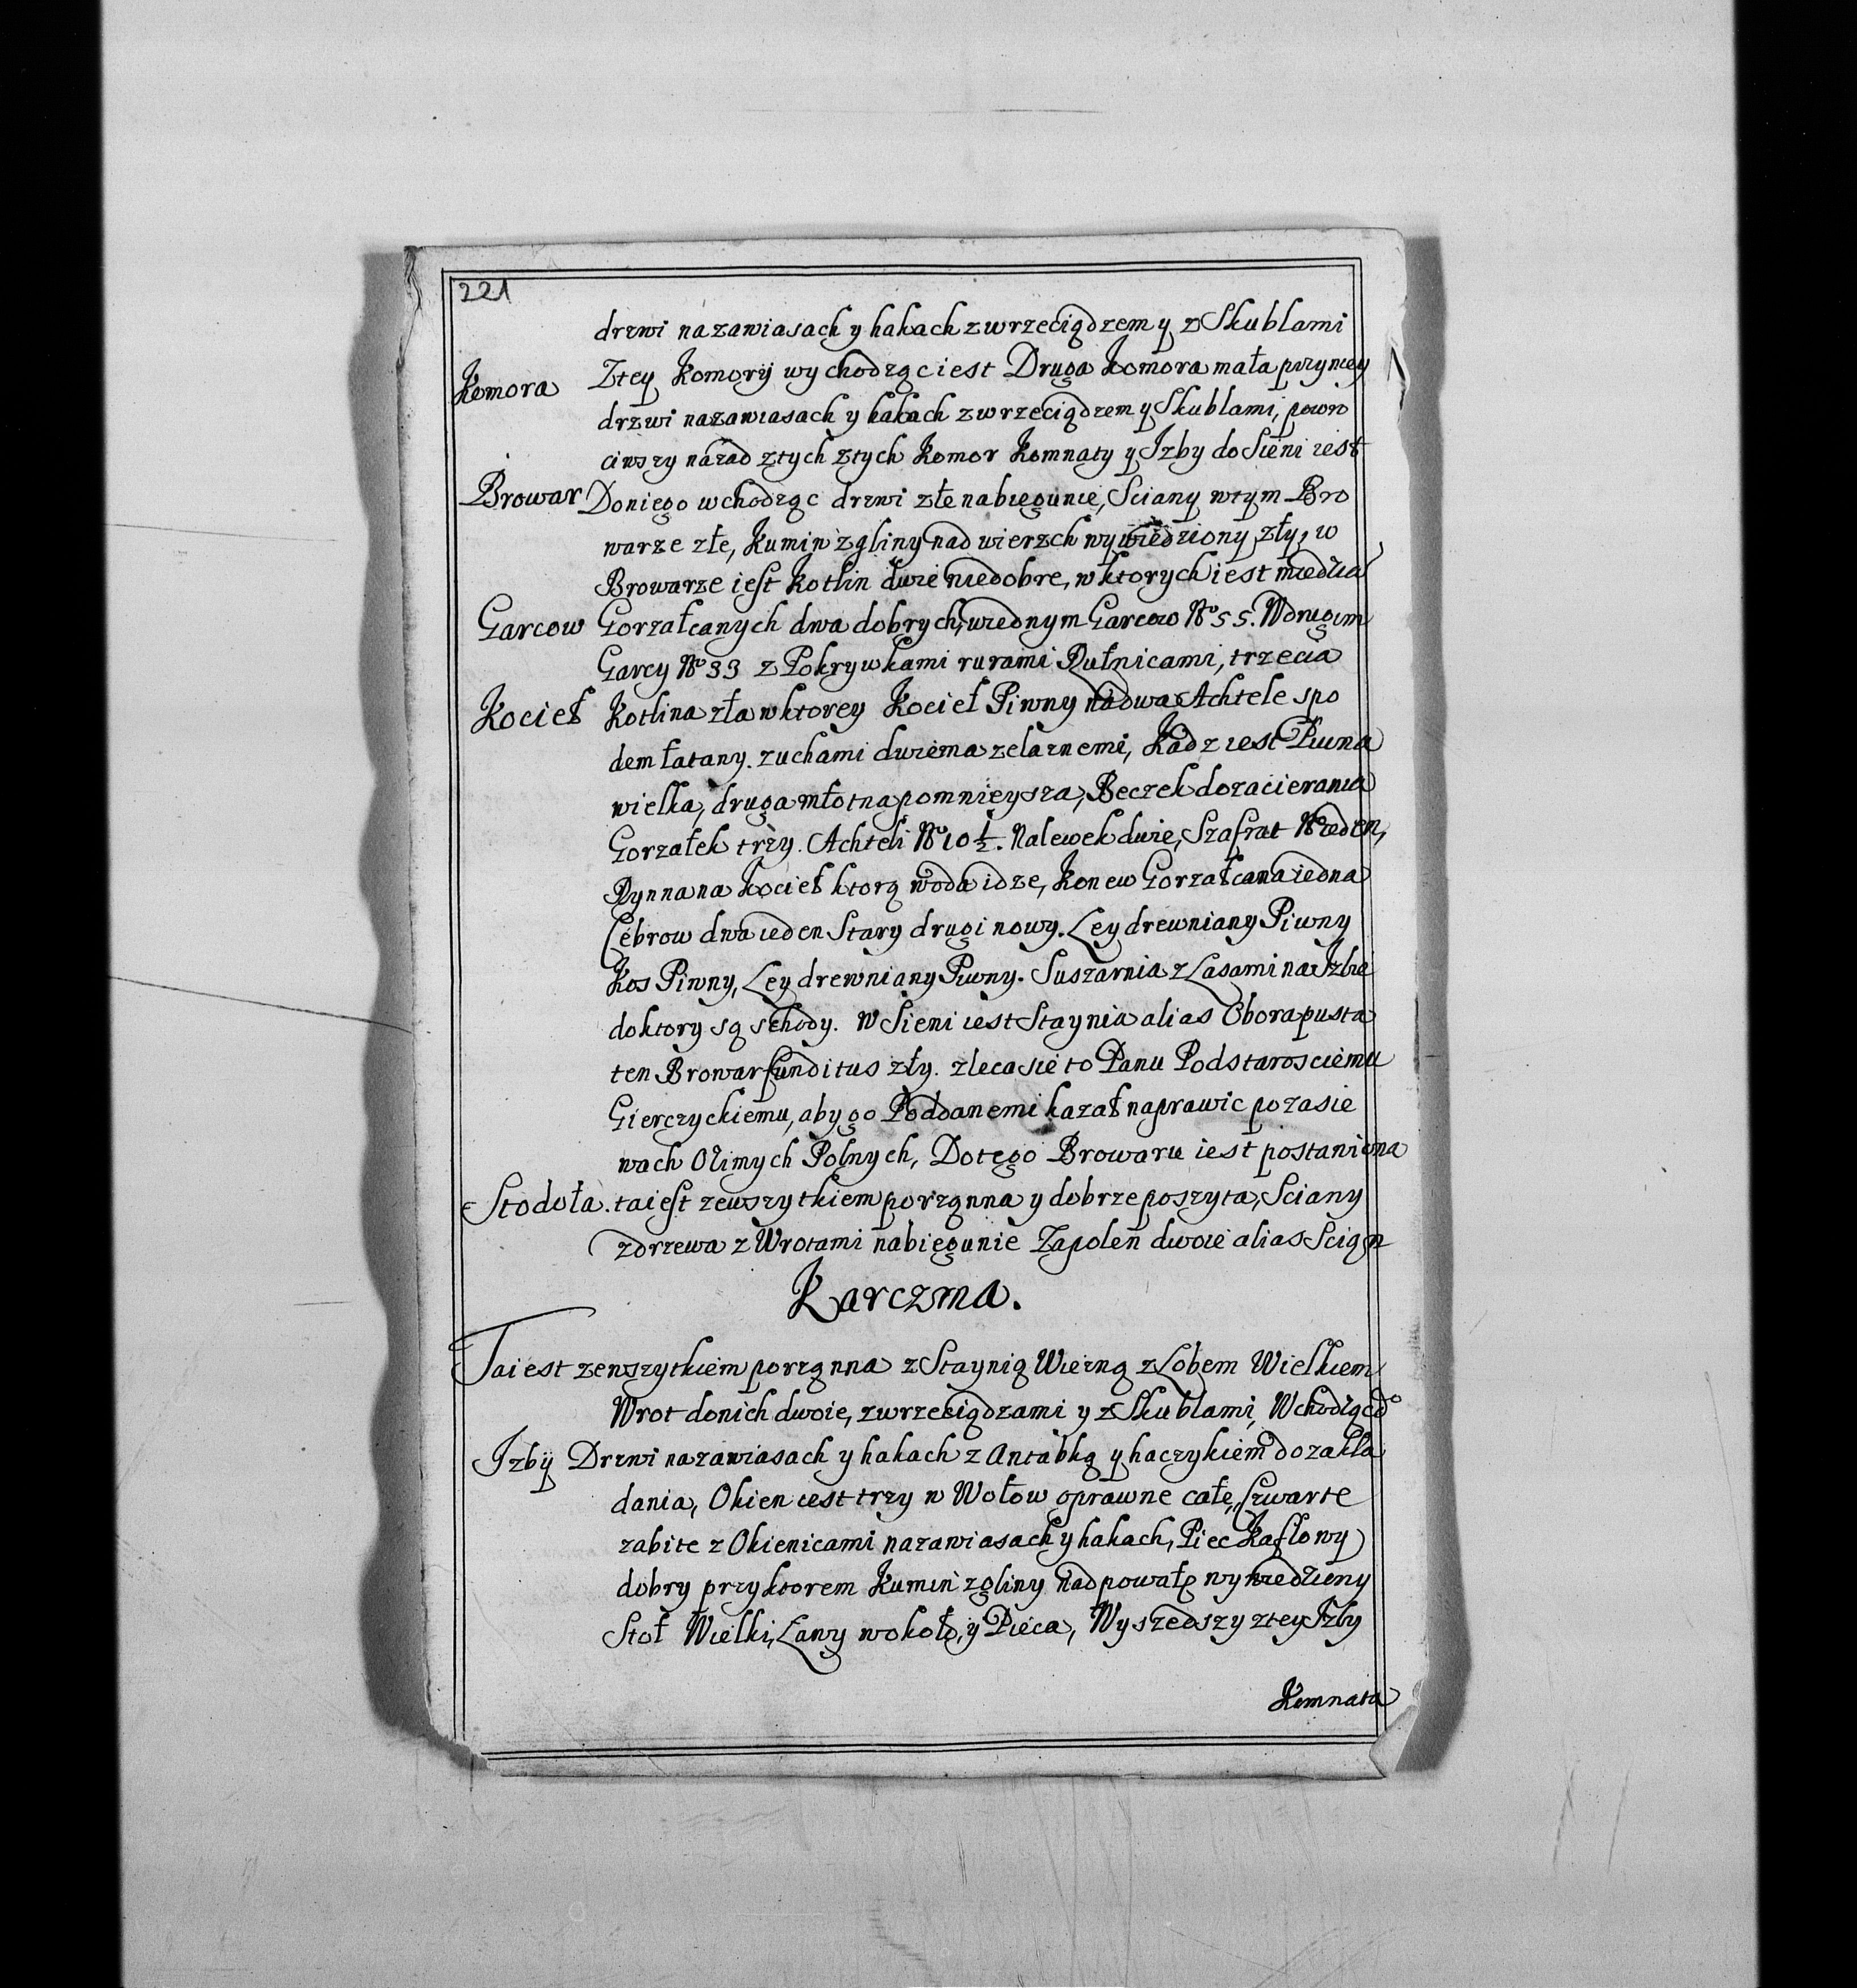 221
drzwi na zawiasach y hakach z wrzeciądzem y z Skublami
Komora Ztey Komory wychodząc iest Druga Komora mała przy niey
drzwi na zawiasach y hakach z wrzeciądzem y Skublami, powro
ciwszy názad z tych z tych Komor Komnaty y Izby do Sieni iest
Browar Do niego wchodząc drzwi złe na biegunie, Sciany w tym Bro
warze złe, Kumin z gliny nad wierzch wywiedziony zły, w
Browarze iest Kotlin dwie niedobre, w ktorych iest miedzia
Garcow Gorzałcanych dwa dobrych, w iednym Garcow No 55. W drugim
Garcy No 33 z Pokrywkami rurami Rułnicami, trzecia
Kocieł Kotlina zła w ktorey Kocieł Piwny na dwa Achtele spo
dem łatany. z uchami dwiema zelaznemi, Kadz iest Piwna
wielka, druga młotna pomnieysza, Beczek do zacierania
Gorzałek trzy. Achteli No 10 1/2. Nalewek dwie, Szafrat No ieden,
Rynna na Kocieł ktorą woda idze, Konew Gorzałcana iedna
Cebrow dwa ieden Stary drugi nowy. Ley drewniany Piwny
Kos Piwny, Ley drewniany Piwny. Suszarnia z Lasami na Izbie
do ktory są schody. W Sieni iest Staynia alias Obora pusta
ten Browar funditus zły. zleca sie to Panu Podstarosciemu
Gierczyckiemu, aby go Poddanemi kazał naprawic po zasie
wach Ozimych Polnych, Do tego Browaru iest postawiona
Stodoła. ta iest ze wszytkiem porząnna y dobrze poszyta, Sciany
z drzewa z Wrotami na biegunie Zapolen dwoie alias Sciąn
Karczma.
Ta iest ze wszytkiem porząnna z Staynią Wiezną z Lobem Wielkiem
Wrot do nich dwoie, z wrzeciądzami y z Skublami, Wchodząc do
Izby Drzwi na zawiasach y hakach z Antabką y haczykiem do zakła
dania, Okien iest trzy w Wołow oprawne całe, Szwarte
zabite z Okienicami na zawiasach y hakach, Piec Kaflowy
dobry przy ktorem Kumin z gliny nad powałę wywiedziony
Stoł Wielki, Lawy wokoło, y Pieca, Wyszedszy z tey Izby
Komnata